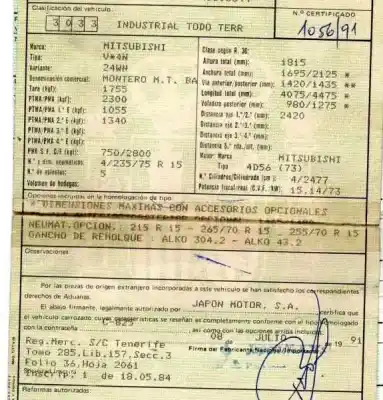 Clasificación del vehículo
Nº CERTIFICADO
3033
INDUSTRIAL TODO TERR
1056/91
Marca: MITSUBISHI
Tipo: V*4N
Variante: 24WN
Denominación comercial: MONTERO M.T. BA
Tara (kgf): 1755
PTMA/PMA (kgf): 2300
PTMA/PMA 1.º E (kgf): 1055
PTMA/PMA 2.º E (kgf): 1340
PTMA/PMA 3.º E (kgf):
PTMA/PMA 4.º E (kgf):
PMA S.R. C/F (kgf): 750/2800
N.º y dim. neumáticos: 4/235/75 R 15
N.º de asientos: 5
Volumen de bodegas:
Clase según R. 36:
Altura total (mm): 1815
Anchura total (mm): 1695/2125 *
Vía anterior/posterior (mm): 1420/1435 **
Longitud total (mm): 4075/4475 *
Voladizo posterior (mm): 980/1275 *
Distancia eje 1.º/2.º (mm): 2420
Distancia eje 2.º/3.º (mm):
Distancia eje 3.º/4.º (mm):
Motor: Marca MITSUBISHI
Tipo 4D56 (73)
N.º Cilindros/Cilindrada (cm³): 4/2477
Potencia fiscal/real (C.V.F./kW): 15,14/73
Opciones incluidas en la homologación de tipo:
* DIMENSIONES MAXIMAS CON ACCESORIOS OPCIONALES
NEUMAT.OPCION.: 215 R 15 - 265/70 R 15 - 255/70 R 15
GANCHO DE REMOLQUE : ALKO 304.2 - ALKO 43.2
Observaciones
Por las piezas de origen extranjero incorporadas a este vehículo se han satisfecho los correspondientes
derechos de Aduanas.
El abajo firmante, legalmente autorizado por JAPON MOTOR, S.A. certifica que
el vehículo carrozado, cuyas características se reseñan es completamente conforme con el tipo homologado
con la contraseña C-823 así como con las opciones arriba incluidas.
08 JULIO de 19 91
Reg.Merc. S/C Tenerife
Firma del Fabricante Nacional/Importador
Tomo 285,Lib.157,Secc.3
Folio 36,Hoja 2061
Inscrip. 1 de 18.05.84
Reformas autorizadas: